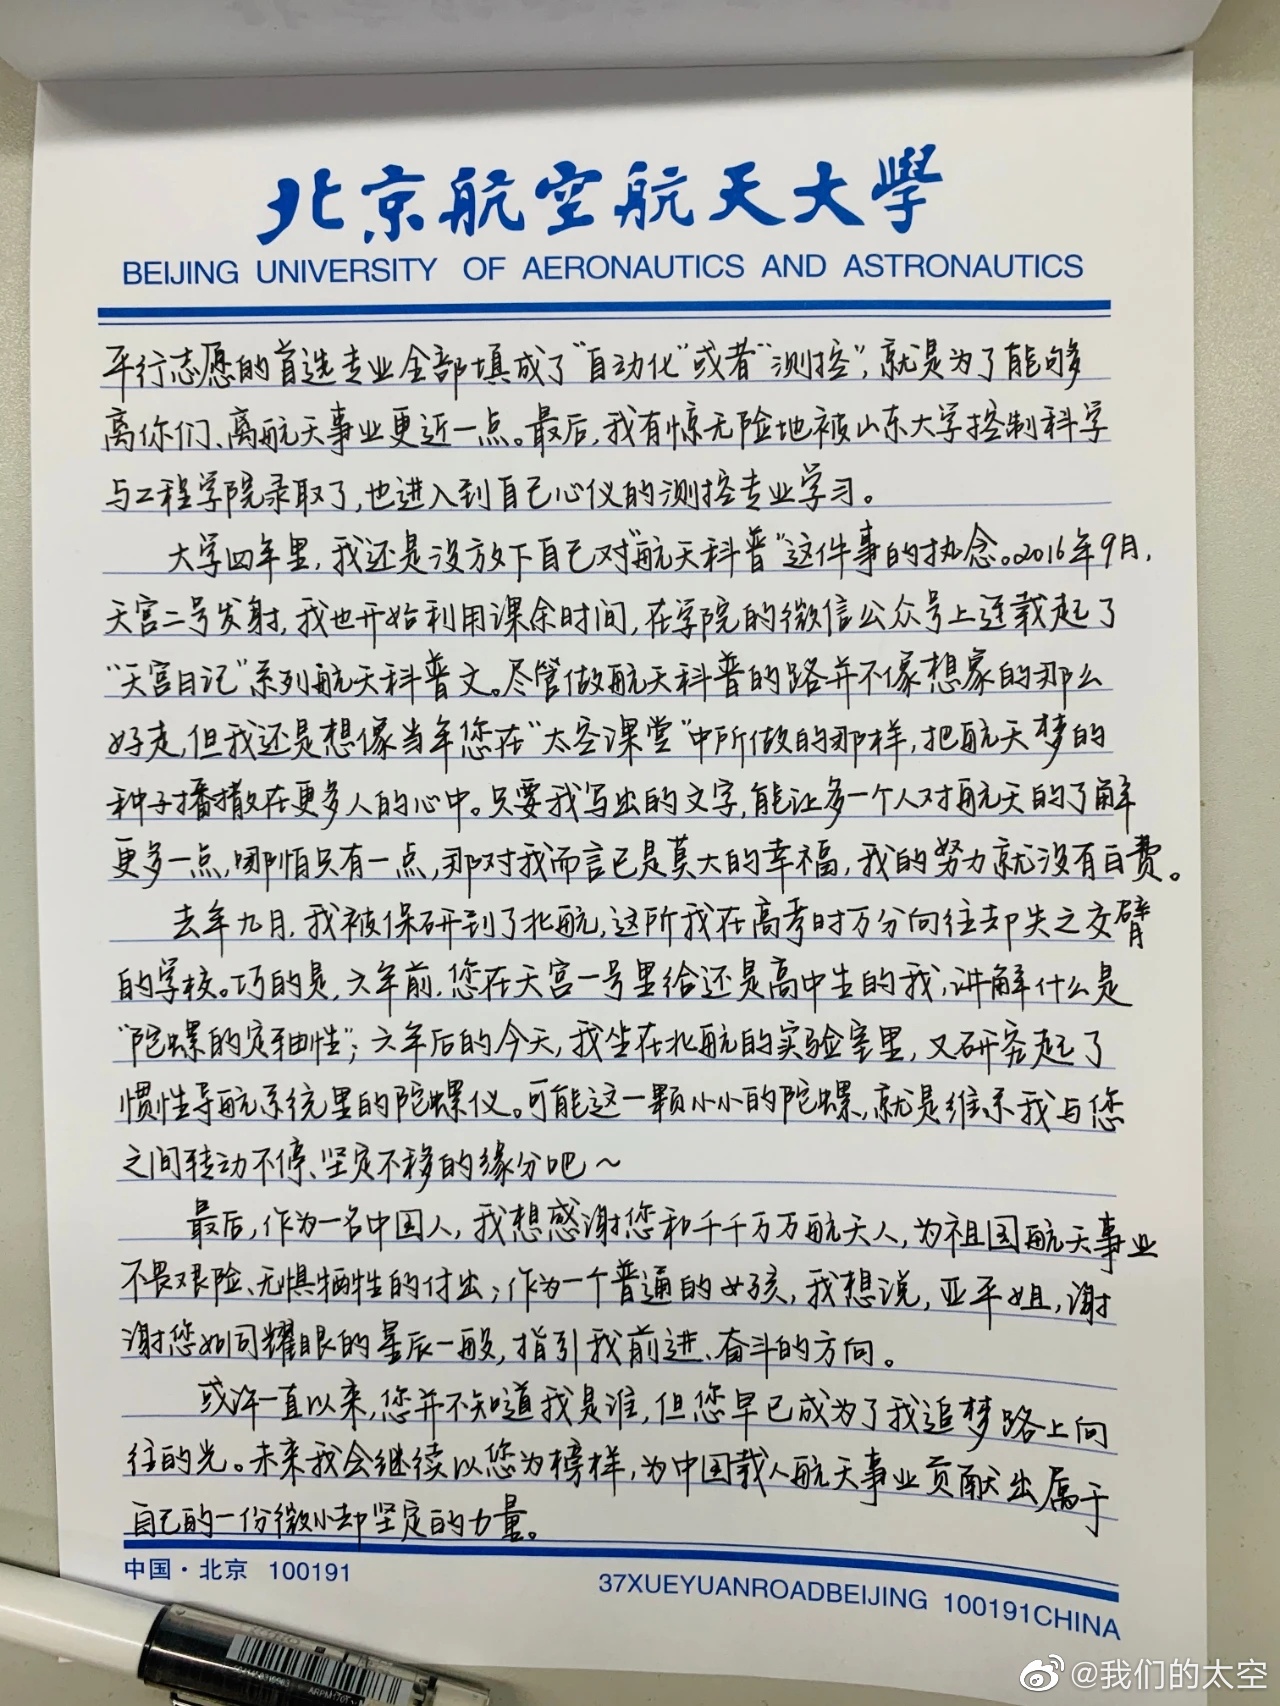 北京航空航天大學
BEIJING UNIVERSITY OF AERONAUTICS AND ASTRONAUTICS
平行志愿的首选专业全部填成了“自动化”或者“测控”，就是为了能够
离你们、离航天事业更近一点。最后，我有惊无险地被山东大学控制科学
与工程学院录取了，也进入到自己心仪的测控专业学习。
大学四年里，我还是没放下自己对“航天科普”这件事的执念。2016年9月，
天宫二号发射，我也开始利用课余时间，在学院的微信公众号上连载起了
“天宫日记”系列航天科普文。尽管做航天科普的路并不像想象的那么
好走，但我还是想像当年您在“太空课堂”中所做的那样，把航天梦的
种子播撒在更多人的心中。只要我写出的文字，能让多一个人对航天的了解
更多一点，哪怕只有一点，那对我而言已是莫大的幸福，我的努力就没有白费。
去年九月，我被保研到了北航，这所我在高考时万分向往却失之交臂
的学校。巧的是，六年前，您在天宫一号里给还是高中生的我，讲解什么是
“陀螺的定轴性”；六年后的今天，我坐在北航的实验室里，又研究起了
惯性导航系统里的陀螺仪。可能这一颗小小的陀螺，就是维系我与您
之间转动不停、坚定不移的缘分吧～
最后，作为一名中国人，我想感谢您和千千万万航天人，为祖国航天事业
不畏艰险、无惧牺牲的付出；作为一个普通的女孩，我想说，亚平姐，谢
谢您如同耀眼的星辰一般，指引我前进、奋斗的方向。
或许一直以来，您并不知道我是谁，但您早已成为了我追梦路上向
往的光。未来我会继续以您为榜样，为中国载人航天事业贡献出属于
自己的一份微小却坚定的力量。
中国·北京 100191
37XUEYUANROADBEIJING 100191CHINA
@我们的太空